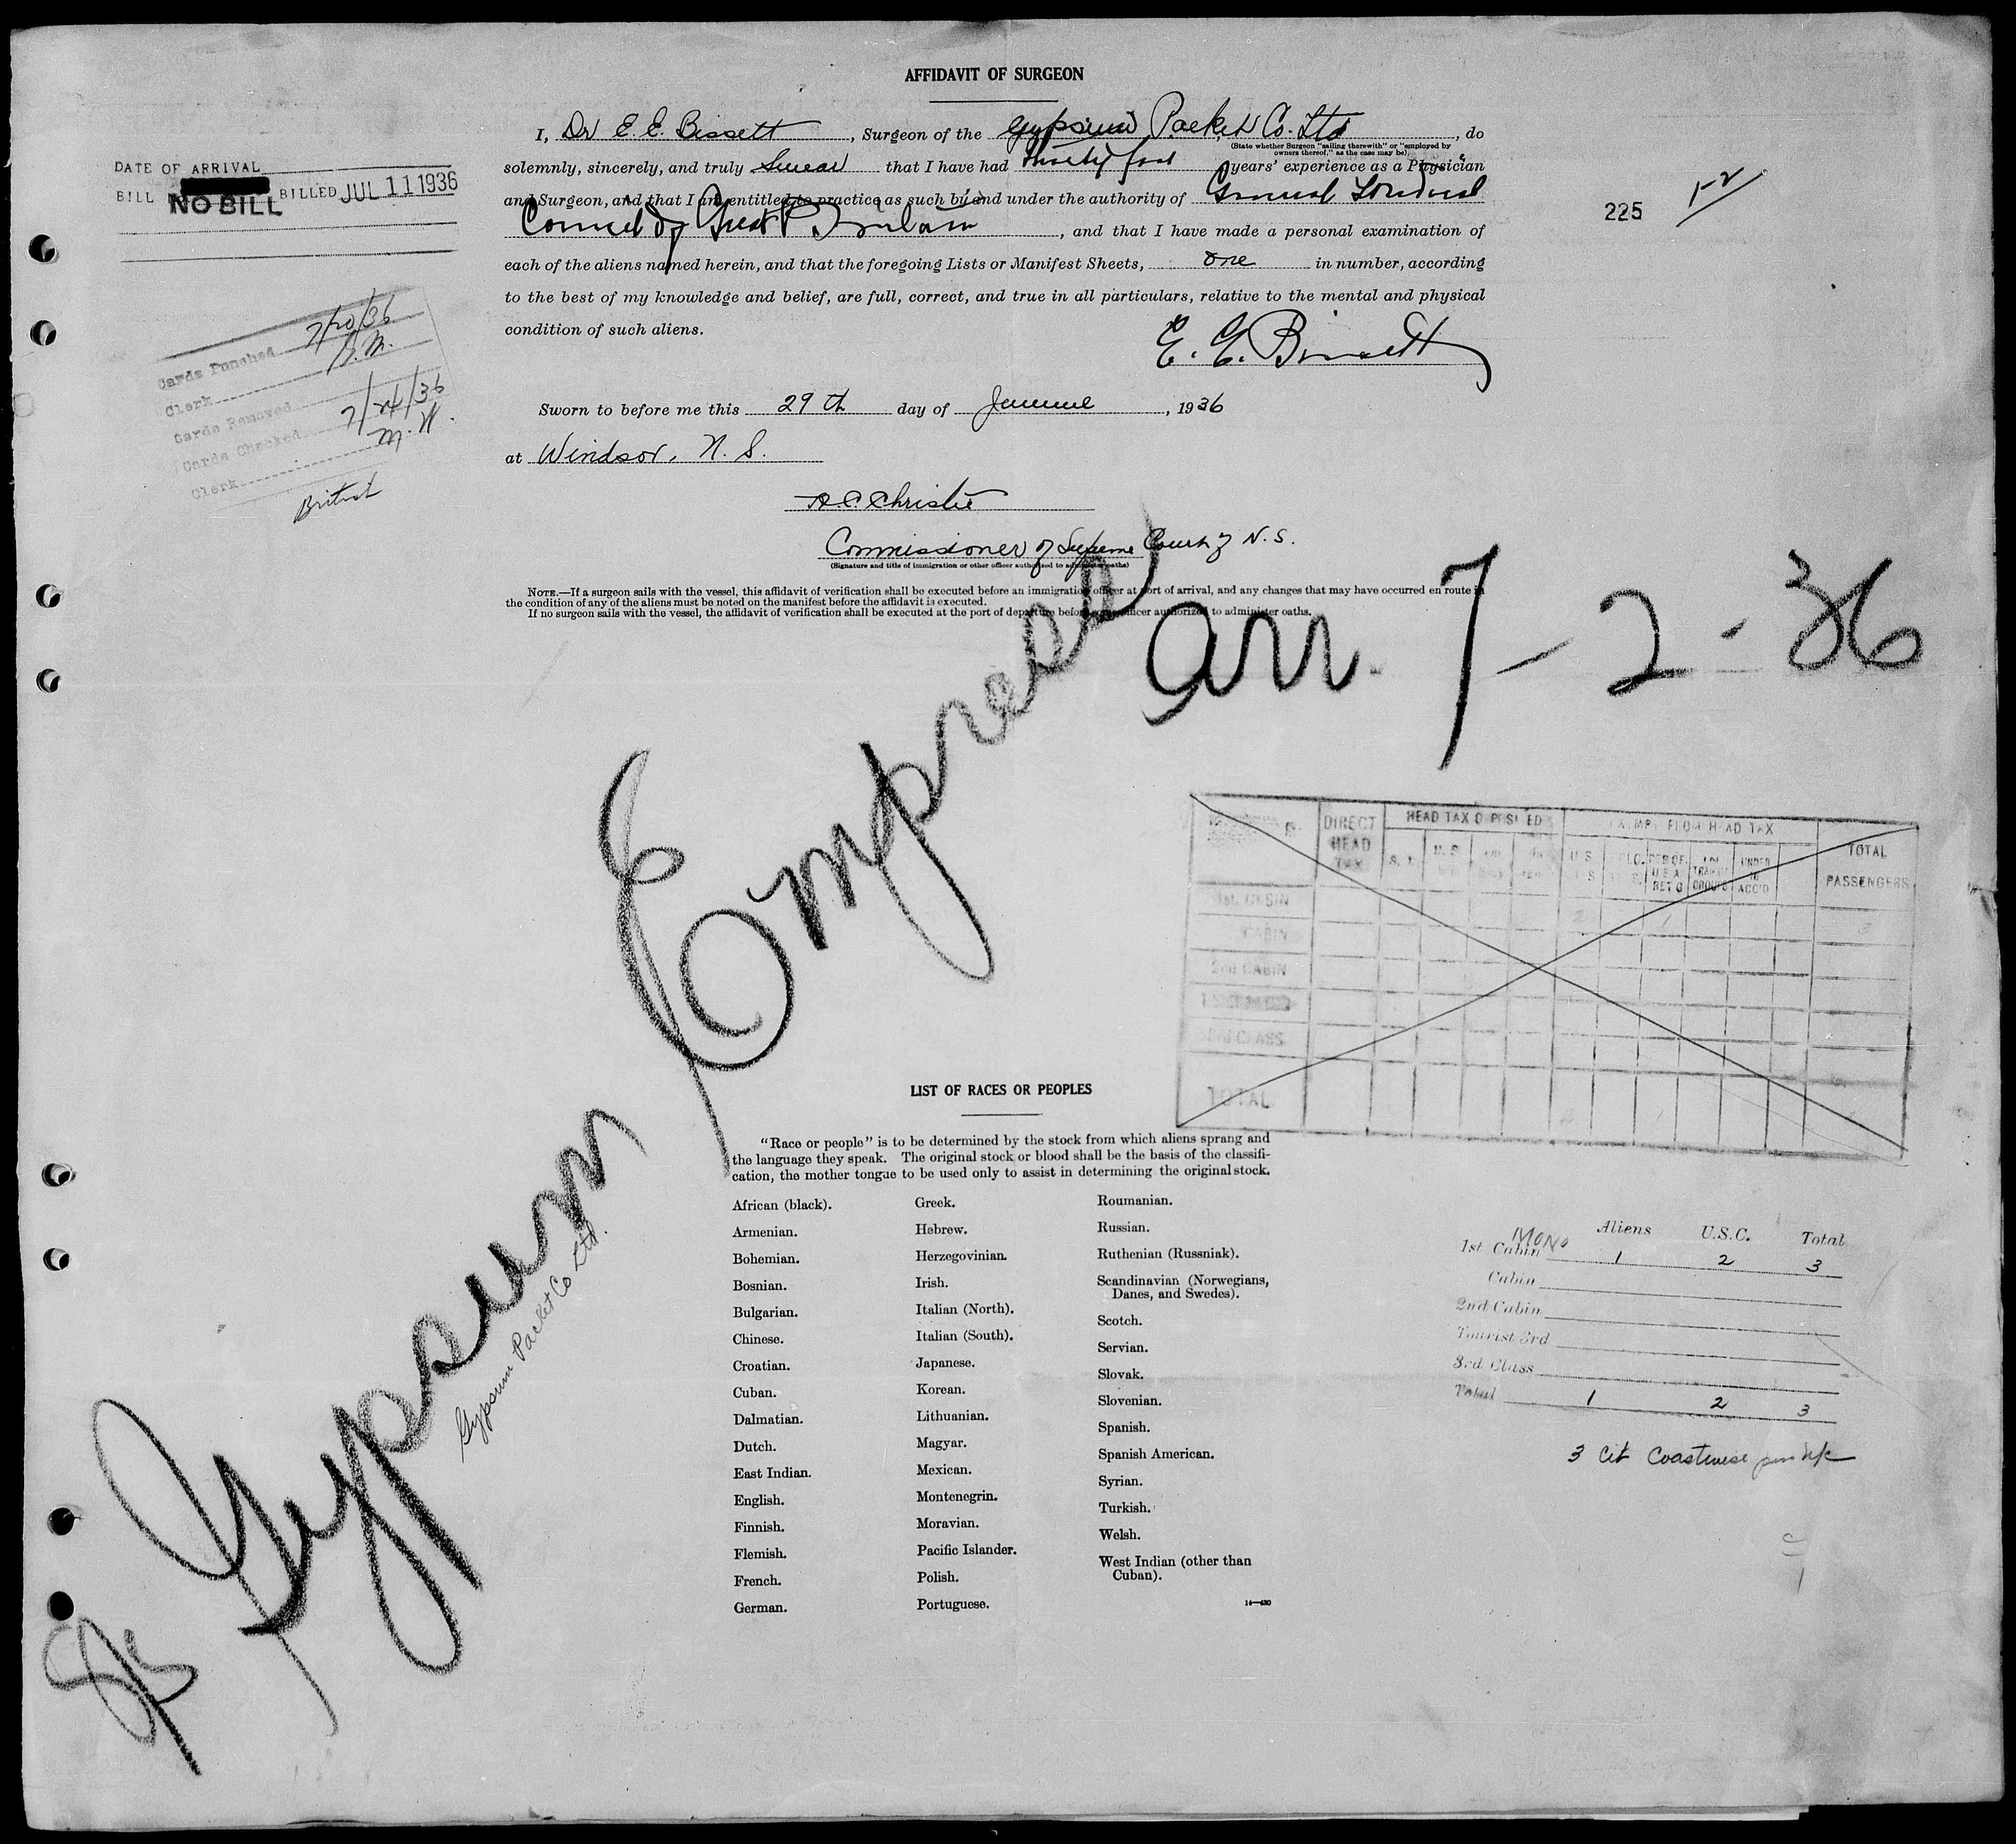 AFFIDAVIT OF SURGEON
I, Dr E. E. Bissett, Surgeon of the Gypsum Packet Co. Ltd, do
(State whether Surgeon "sailing therewith" or "employed by
owners thereof," as the case may be)
solemnly, sincerely, and truly swear that I have had thirty four years' experience as a Physician
and Surgeon, and that I am entitled to practice as such by and under the authority of
Council of Great Britain, and that I have made a personal examination of
each of the aliens named herein, and that the foregoing Lists or Manifest Sheets, one in number, according
to the best of my knowledge and belief, are full, correct, and true in all particulars, relative to the mental and physical
condition of such aliens.
E. E. Bissett
Sworn to before me this 29th day of , 1936
at Windsor, N. S.
Christie
Commissioner of Supreme Court of N.S.
(Signature and title of immigration or other officer authorized to administer oaths)
NOTE.—If a surgeon sails with the vessel, this affidavit of verification shall be executed before an immigration officer at port of arrival, and any changes that may have occurred en route in
the condition of any of the aliens must be noted on the manifest before the affidavit is executed.
If no surgeon sails with the vessel, the affidavit of verification shall be executed at the port of departure before officer authorized to administer oaths.
DATE OF ARRIVAL
BILL
NO BILL
BILLED JUL 11 1936
Cards Punched 7/20/36
Clerk
Cards Removed
Cards Checked 7/24/36
Clerk M. W.
British
225
Gypsum Empress
arr. 7-2-36
Gypsum Packet Co Ltd.
DIRECT HEAD TAX
HEAD TAX DEPOSITED
EXEMPT FROM HEAD TAX
TOTAL PASSENGERS
1st. CABIN
CABIN
2nd CABIN
3rd CLASS
TOTAL
LIST OF RACES OR PEOPLES
"Race or people" is to be determined by the stock from which aliens sprang and
the language they speak. The original stock or blood shall be the basis of the classifi-
cation, the mother tongue to be used only to assist in determining the original stock.
African (black).
Armenian.
Bohemian.
Bosnian.
Bulgarian.
Chinese.
Croatian.
Cuban.
Dalmatian.
Dutch.
East Indian.
English.
Finnish.
Flemish.
French.
German.
Greek.
Hebrew.
Herzegovinian.
Irish.
Italian (North).
Italian (South).
Japanese.
Korean.
Lithuanian.
Magyar.
Mexican.
Montenegrin.
Moravian.
Pacific Islander.
Polish.
Portuguese.
Roumanian.
Russian.
Ruthenian (Russniak).
Scandinavian (Norwegians,
Danes, and Swedes).
Scotch.
Servian.
Slovak.
Slovenian.
Spanish.
Spanish American.
Syrian.
Turkish.
Welsh.
West Indian (other than
Cuban).
Aliens U.S.C. Total
MONO
1st Cabin 1 2 3
Cabin
2nd Cabin
Tourist 3rd
3rd Class
Total 1 2 3
3 Cit Coastwise